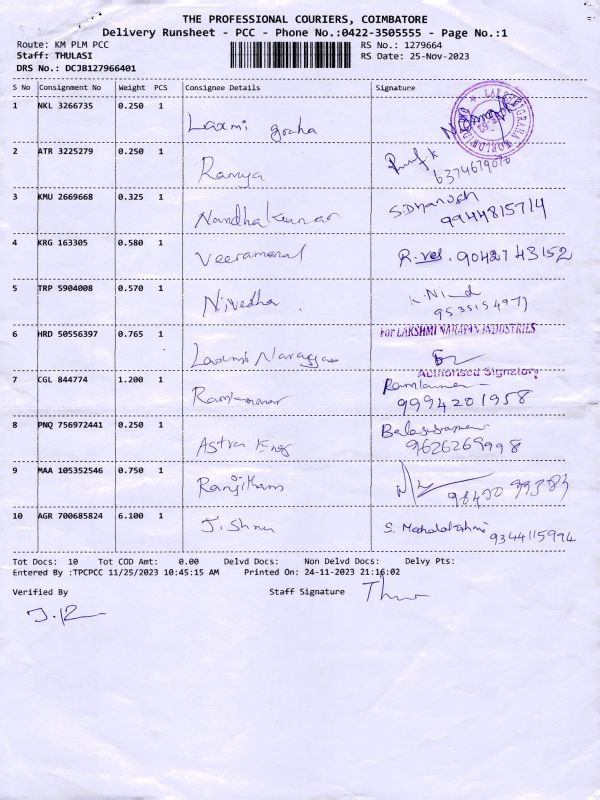 THE PROFESSIONAL COURIERS, COIMBATORE
Delivery Runsheet - PCC - Phone No.:0422-3505555 - Page No.:1
Route: KM PLM PCC RS No.: 1279664
Staff: THULASI RS Date: 25-Nov-2023
DRS No.: DCJB127966401
S No Consignment No Weight PCS Consignee Details Signature
1 NKL 3266735 0.250 1 Laxmi graha
2 ATR 3225279 0.250 1 Ramya
6374679070
3 KMU 2669668 0.325 1 Nandhakumar S.Dhanush
9944815714
4 KRG 163305 0.580 1 Veeramanal R. 9042743152
5 TRP 5904008 0.570 1 Nivedha K.
9535154977
6 HRD 50556397 0.765 1 Laxmi Narayan FOR LAKSHMI NARAYAN INDUSTRIES
Authorised Signatory
7 CGL 844774 1.200 1 Ramkumar
9994201958
8 PNQ 756972441 0.250 1 Astra King
9626269998
9 MAA 105352546 0.750 1 Ranjitham
10 AGR 700685824 6.100 1 J. S. Mahalakshmi 9344115994
Tot Docs: 10 Tot COD Amt: 0.00 Delvd Docs: Non Delvd Docs: Delvy Pts:
Entered By :TPCPCC 11/25/2023 10:45:15 AM Printed On: 24-11-2023 21:16:02
Verified By Staff Signature